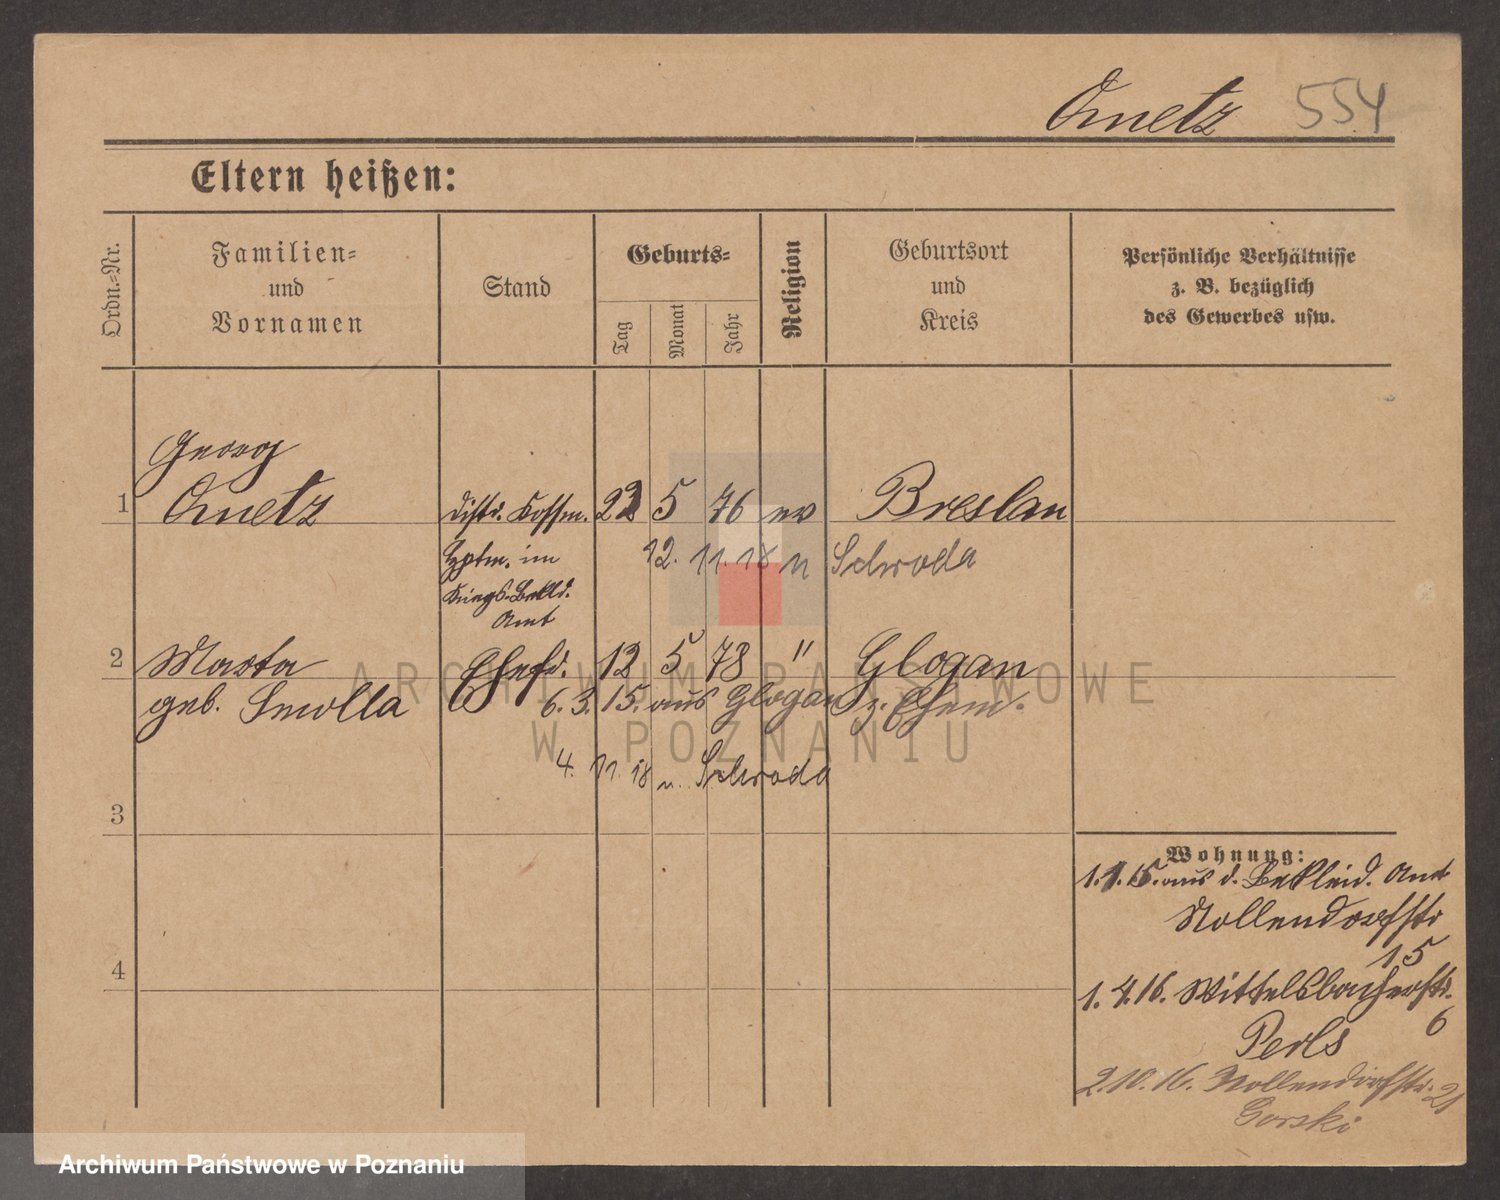 Ometz 554
Eltern heißen:
Ordn.=Nr.
Familien=
und
Vornamen
Stand
Geburts=
Tag
Monat
Jahr
Religion
Geburtsort
und
Kreis
Persönliche Verhältnisse
z. B. bezüglich
des Gewerbes usw.
Georg
1 Ometz Distr. Komm. 23 5 76 ev Breslau
Hptm. im 12. 11. 18 n Schroda
Kriegs-Bekld.
Amt
2 Marta Ehefr. 12 5 78 " Glogau
geb. Smolla 6. 3. 15. aus Glogau z. Ehem.
4. 11. 18 n. Schroda
3
4
Wohnung:
1. 1. 15. aus d. Bekleid. Amt
Nollendorfstr
15
1. 4. 16. Wittelsbacherstr.
6
Perls
2. 10. 16. Nollendorfstr. 21
Gorski
ARCHIWUM PAŃSTWOWE
W POZNANIU
Archiwum Państwowe w Poznaniu